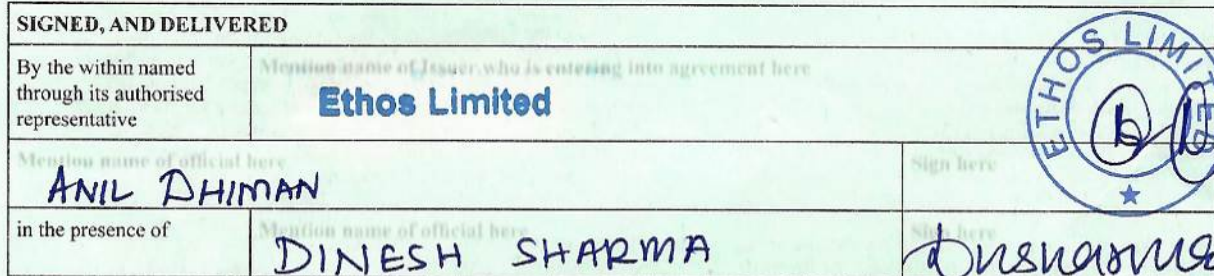 SIGNED, AND DELIVERED
By the within named
through its authorised
representative
Mention name of Issuer who is entering into agreement here
Ethos Limited
ETHOS LIMITED
Mention name of official here
ANIL DHIMAN
Sign here
in the presence of
Mention name of official here
DINESH SHARMA
Sign here